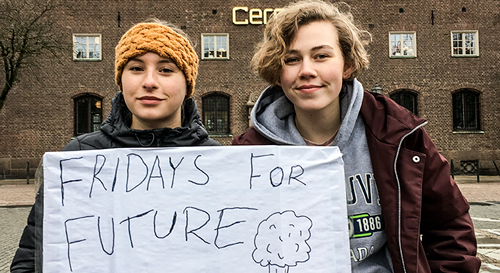 Cer
FRIDAYS FOR
FUTURE
1886